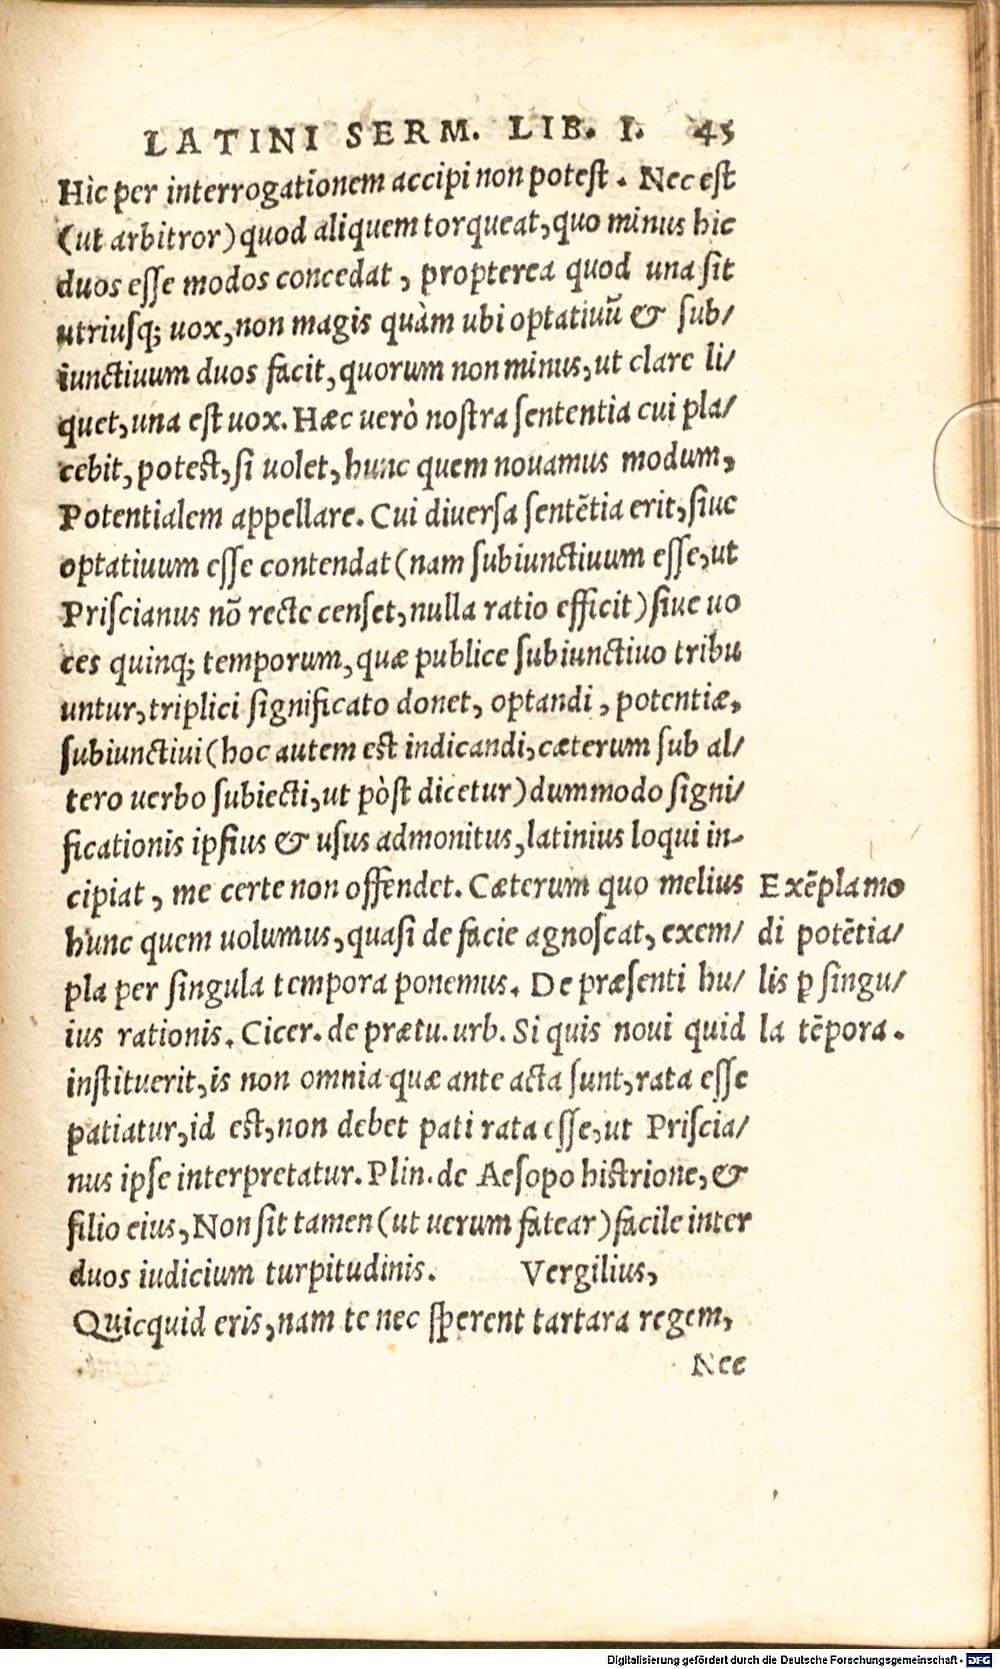 LATINI SERM. LIB. I. 45
Hìc per interrogationem accipi non potest. Nec est
(ut arbitror) quod aliquem torqueat, quo minus hic
duos esse modos concedat, propterea quod una sit
utriusq; uox, non magis quàm ubi optatiuū & sub/
iunctiuum duos facit, quorum non minus, ut clare li/
quet, una est uox. Hæc uerò nostra sententia cui pla/
cebit, potest, si uolet, hunc quem nouamus modum,
Potentialem appellare. Cui diuersa sentētia erit, siue
optatiuum esse contendat (nam subiunctiuum esse, ut
Priscianus nō recte censet, nulla ratio efficit) siue uo
ces quinq; temporum, quæ publice subiunctiuo tribu
untur, triplici significato donet, optandi, potentiæ,
subiunctiui (hoc autem est indicandi, cæterum sub al/
tero uerbo subiecti, ut pòst dicetur) dummodo signi/
ficationis ipsius & usus admonitus, latinius loqui in-
cipiat, me certe non offendet. Cæterum quo melius
hunc quem uolumus, quasi de facie agnoscat, exem/
pla per singula tempora ponemus. De præsenti hu/
ius rationis. Cicer. de prætu. urb. Si quis noui quid
instituerit, is non omnia quæ ante acta sunt, rata esse
patiatur, id est, non debet pati rata esse, ut Priscia/
nus ipse interpretatur. Plin. de Aesopo histrione, &
filio eius, Non sit tamen (ut uerum fatear) facile inter
duos iudicium turpitudinis. Vergilius,
Quicquid eris, nam te nec sperent tartara regem,
Nec
Exēpla mo
di potētia/
lis ꝑ singu/
la tēpora.
Digitalisierung gefördert durch die Deutsche Forschungsgemeinschaft - DFG